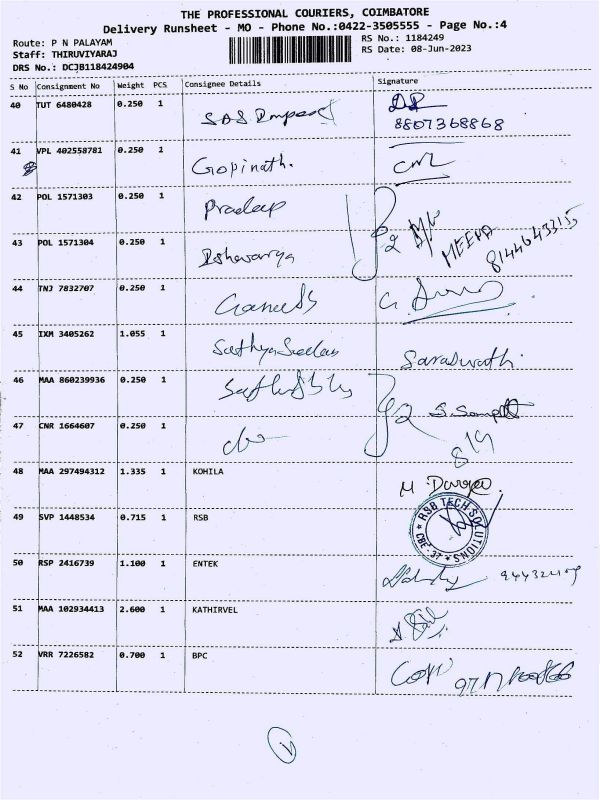 THE PROFESSIONAL COURIERS, COIMBATORE
Delivery Runsheet - MO - Phone No.:0422-3505555 - Page No.:4
Route: P N PALAYAM RS No.: 1184249
Staff: THIRUVIYARAJ RS Date: 08-Jun-2023
DRS No.: DCJB118424904
S No Consignment No Weight PCS Consignee Details Signature
40 TUT 6480428 0.250 1 SAS
8807368868
41 VPL 402558781 0.250 1 Gopinath.
42 POL 1571303 0.250 1 Pradeep
43 POL 1571304 0.250 1 Ishwarya 2 MEENA
44 TNJ 7832707 0.250 1 Ganesh
45 IXM 3405262 1.055 1 Saraswathi
46 MAA 860239936 0.250 1 2
47 CNR 1664607 0.250 1
48 MAA 297494312 1.335 1 KOHILA M
49 SVP 1448534 0.715 1 RSB RSB TECH SOLUTIONS CBE-37
50 RSP 2416739 1.100 1 ENTEK
51 MAA 102934413 2.600 1 KATHIRVEL
52 VRR 7226582 0.700 1 BPC